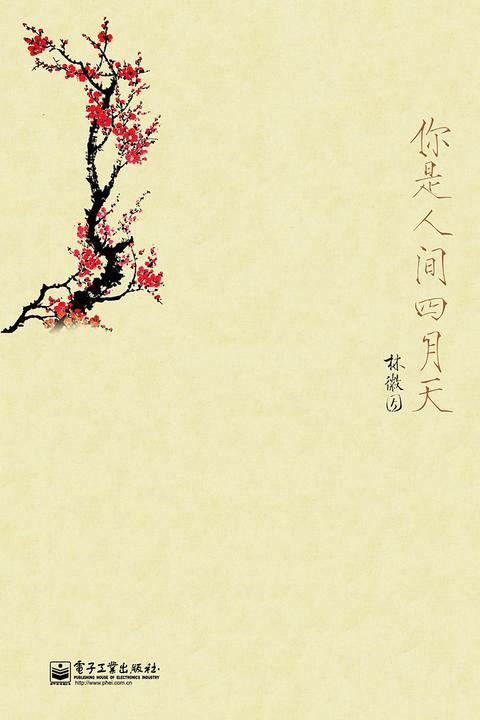 你是人间四月天
林徽因
電子工業出版社·
PUBLISHING HOUSE OF ELECTRONICS INDUSTRY
http://www.phei.com.cn